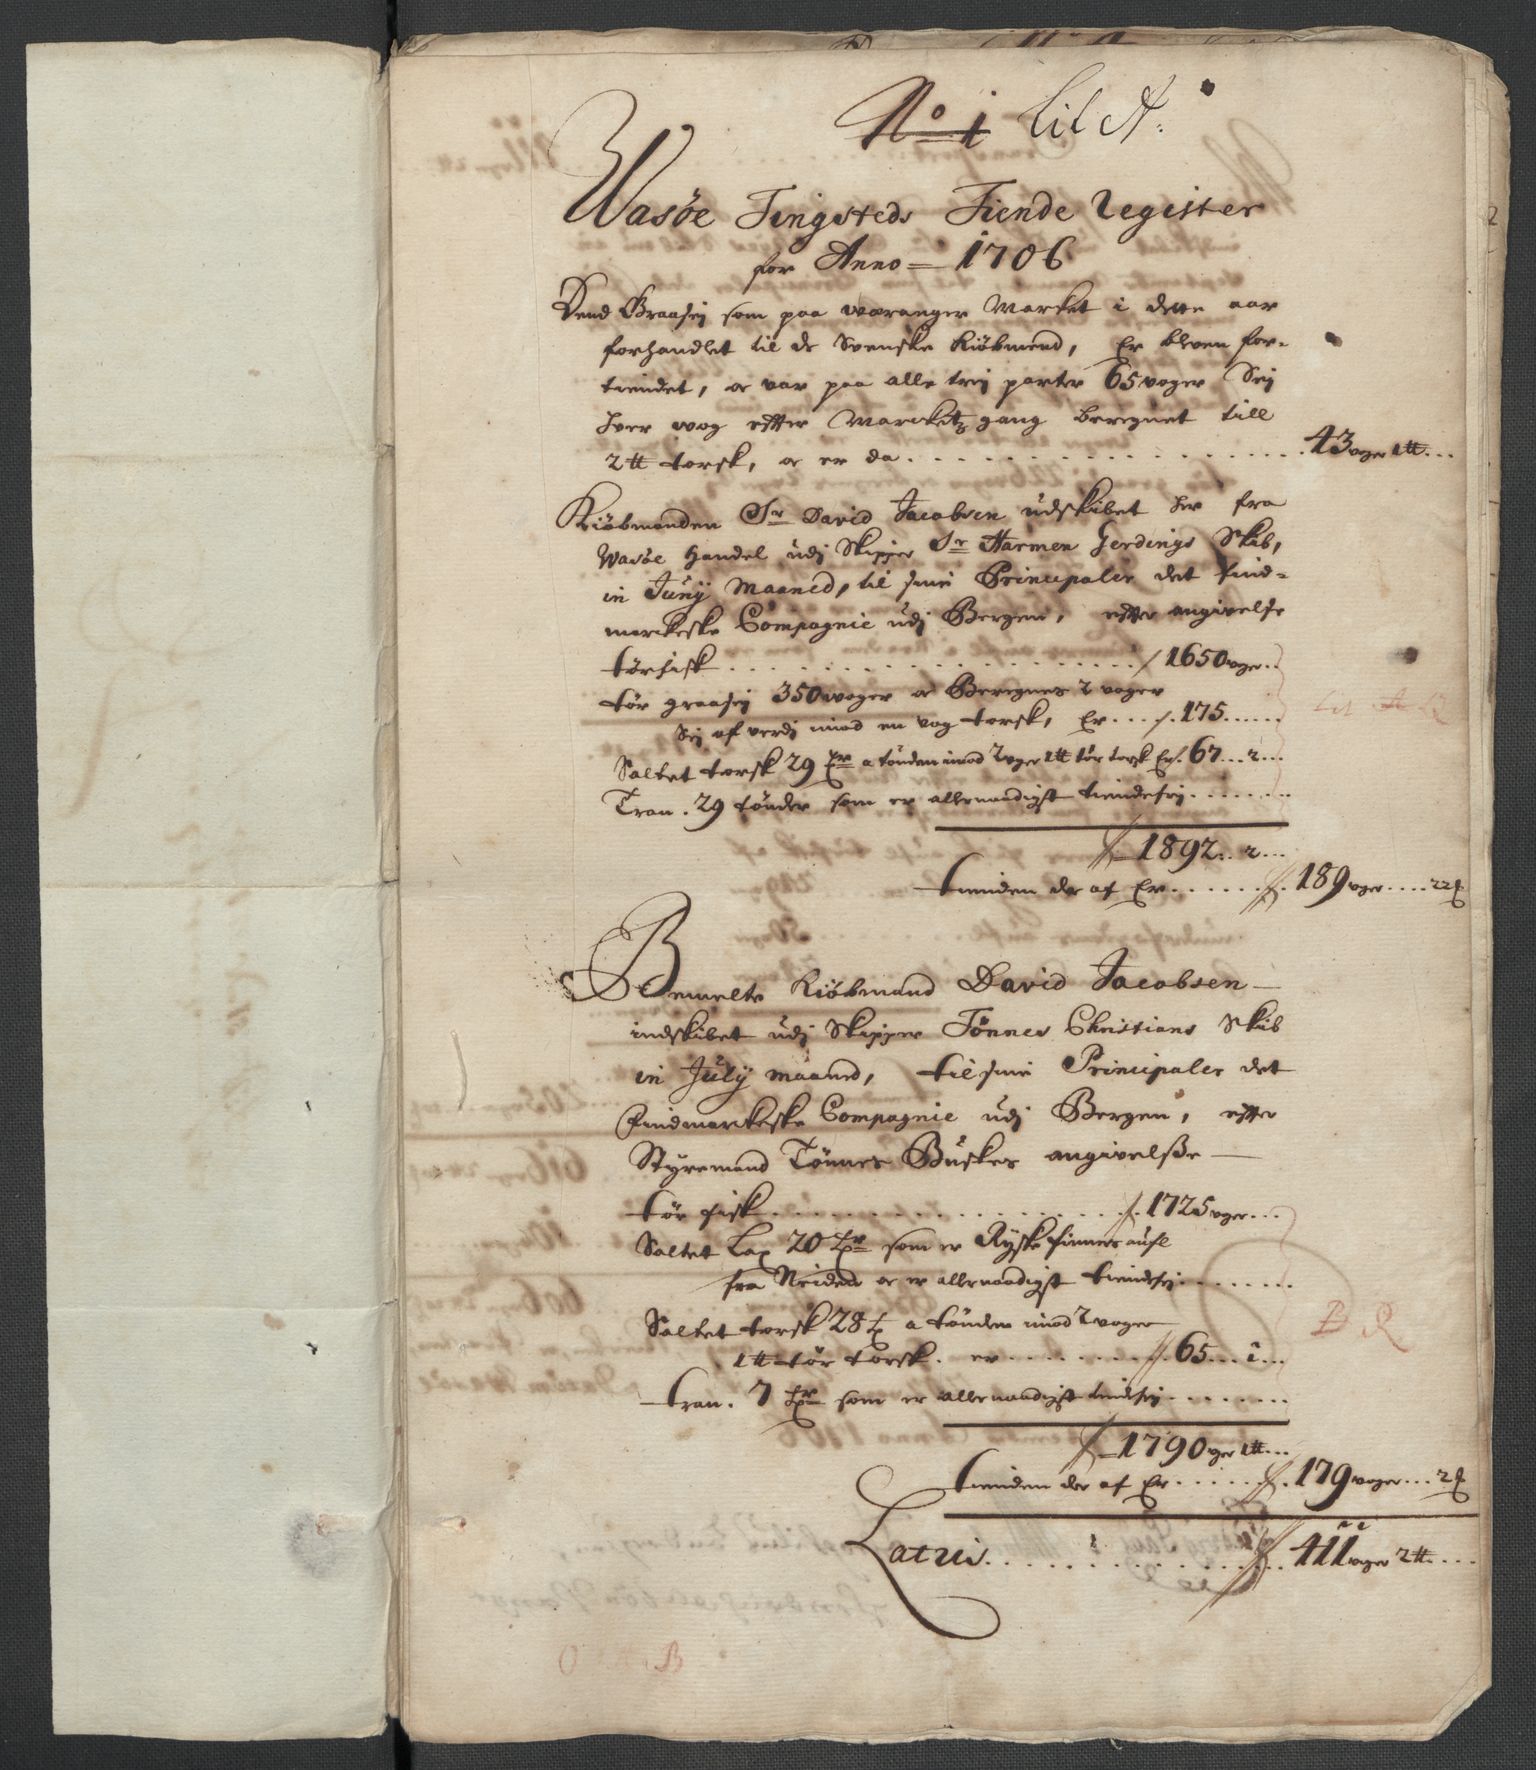 No 1 Lit A:
Wasöe Tingsteds Tiende Register
for Anno 1706
Dend Graasej som paa waranger Marcket i dette aar
forhandlet til de Svenske Kiöbmend, Er bleven for-
tiendet, oc var paa alle trej parter 65 voger Sej
hver wog effter Marcketz gang beregnet till
2 tt torsk, oc er da . . . . 43 voger 1 tt . . .
Kiöbmanden Sr David Jacobsen udskibet her fra
Wasöe Handel udj Skipper Sr Harmen Gerdings Skib,
in Junij Maaned, til sine Principaler det find-
marckeske Compagnie udj Bergen, effter angivelse
törfisk . . . . 1650 voger . .
tör graasej 350 woger oc Beregnes 2 voger
Sej af verdj imod en vog torsk, Er . . . 175 . . . .
Saltet torsk 29 tr a tönden imod 2 voger 1 tt tör torsk Er 67 . . . 2 . . .
Tran . 29 tönder som er allernaadigst tiendefrj . . . .
1892 . . 2 . . .
tienden der af Er . . . . 189 voger . . . . 22
Lit A
Bemelte Kiöbmand David Jacobsen
indskibet udj Skipper Tönnes Christians Skib
in July maaned, til sine Principaler det
Findmarckeske Compagnie udj Bergen, effter
Styremand Tönnes Buskes angivelsße
tör fisk . . . . 1725 voger . . .
Saltet Lax 20 tr som er Ryske finners
fra Neiden oc er allernaadigst tiendefrj . . . .
Saltet torsk 28 t a tönden imod 2 voger
1 tt tör torsk . er . . . . 65 . . . 1 . . .
tran . 7 tr som er allernaadigst tiendfrj . . . .
B R
1790 voger 1 tt . . .
tienden der af Er . . . . 179 voger . . . 2
Latus . . . . 411 voger 2 tt . . . .